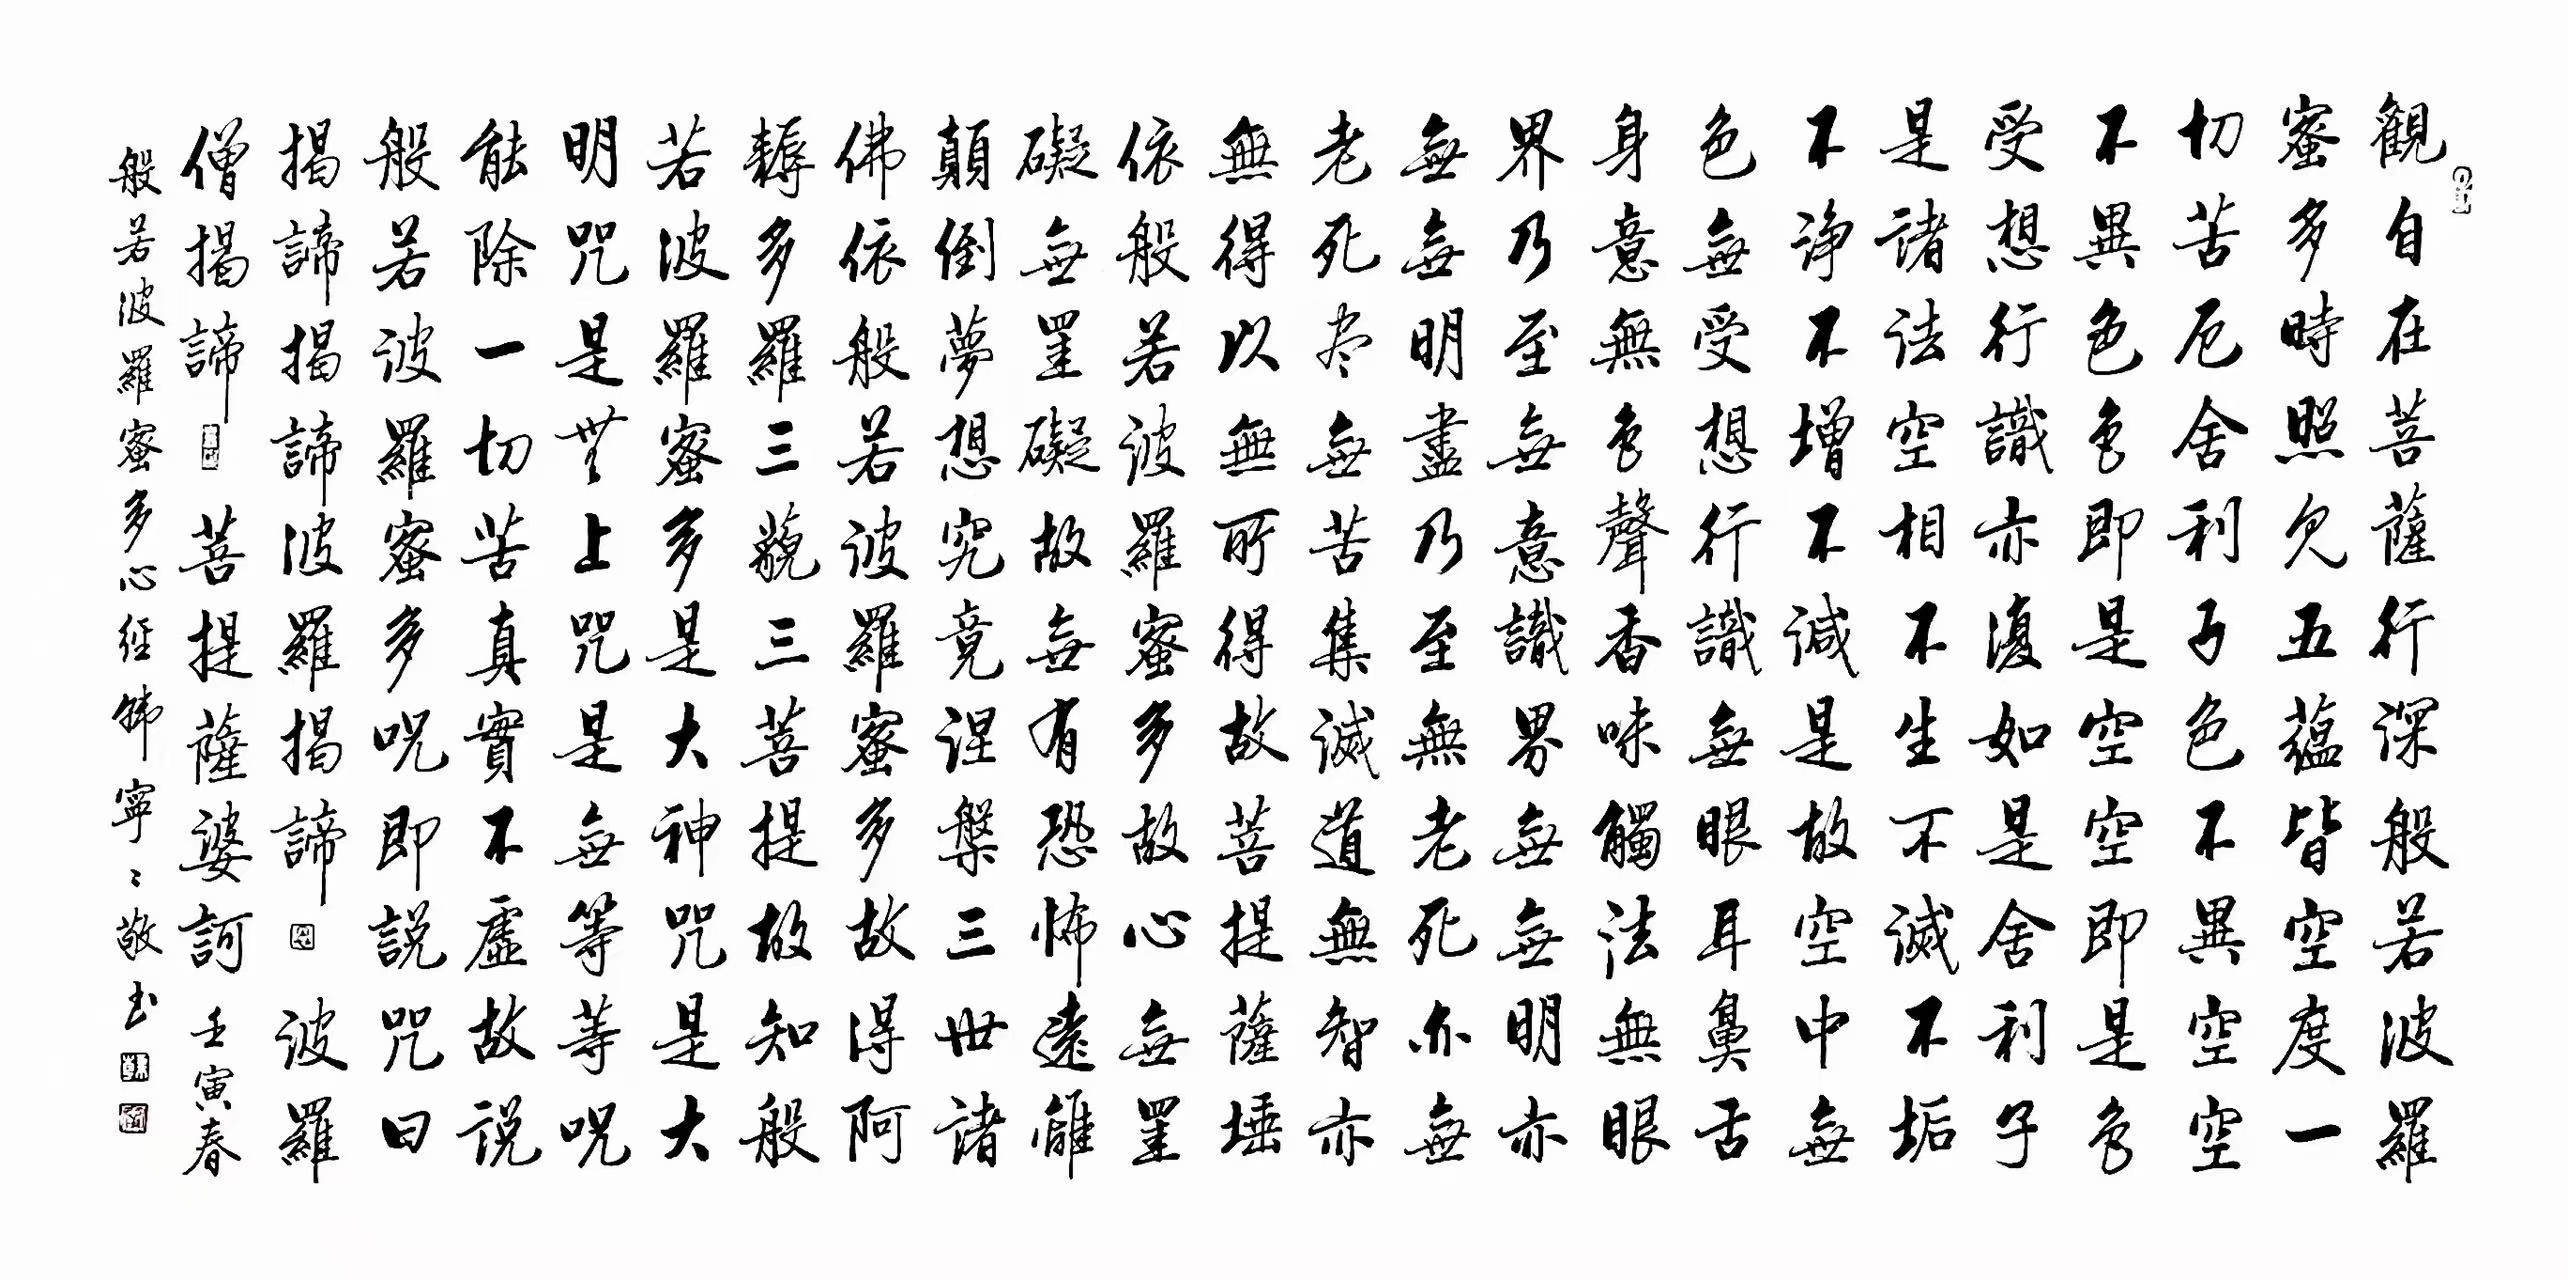 觀自在菩薩行深般若波羅
蜜多時照見五蘊皆空度一
切苦厄舍利子色不異空空
不異色色即是空空即是色
受想行識亦復如是舍利子
是諸法空相不生不滅不垢
不淨不增不減是故空中無
色無受想行識無眼耳鼻舌
身意無色聲香味觸法無眼
界乃至無意識界無無明亦
無無明盡乃至無老死亦無
老死尽無苦集滅道無智亦
無得以無所得故菩提薩埵
依般若波羅蜜多故心無罣
礙無罣礙故無有恐怖遠離
顛倒夢想究竟涅槃三世諸
佛依般若波羅蜜多故得阿
耨多羅三藐三菩提故知般
若波羅蜜多是大神咒是大
明咒是無上咒是無等等咒
能除一切苦真實不虛故說
般若波羅蜜多咒即說咒曰
揭諦揭諦波羅揭諦 波羅
僧揭諦 菩提薩婆訶 壬寅春
般若波羅蜜多心經 韩寧〻敬书